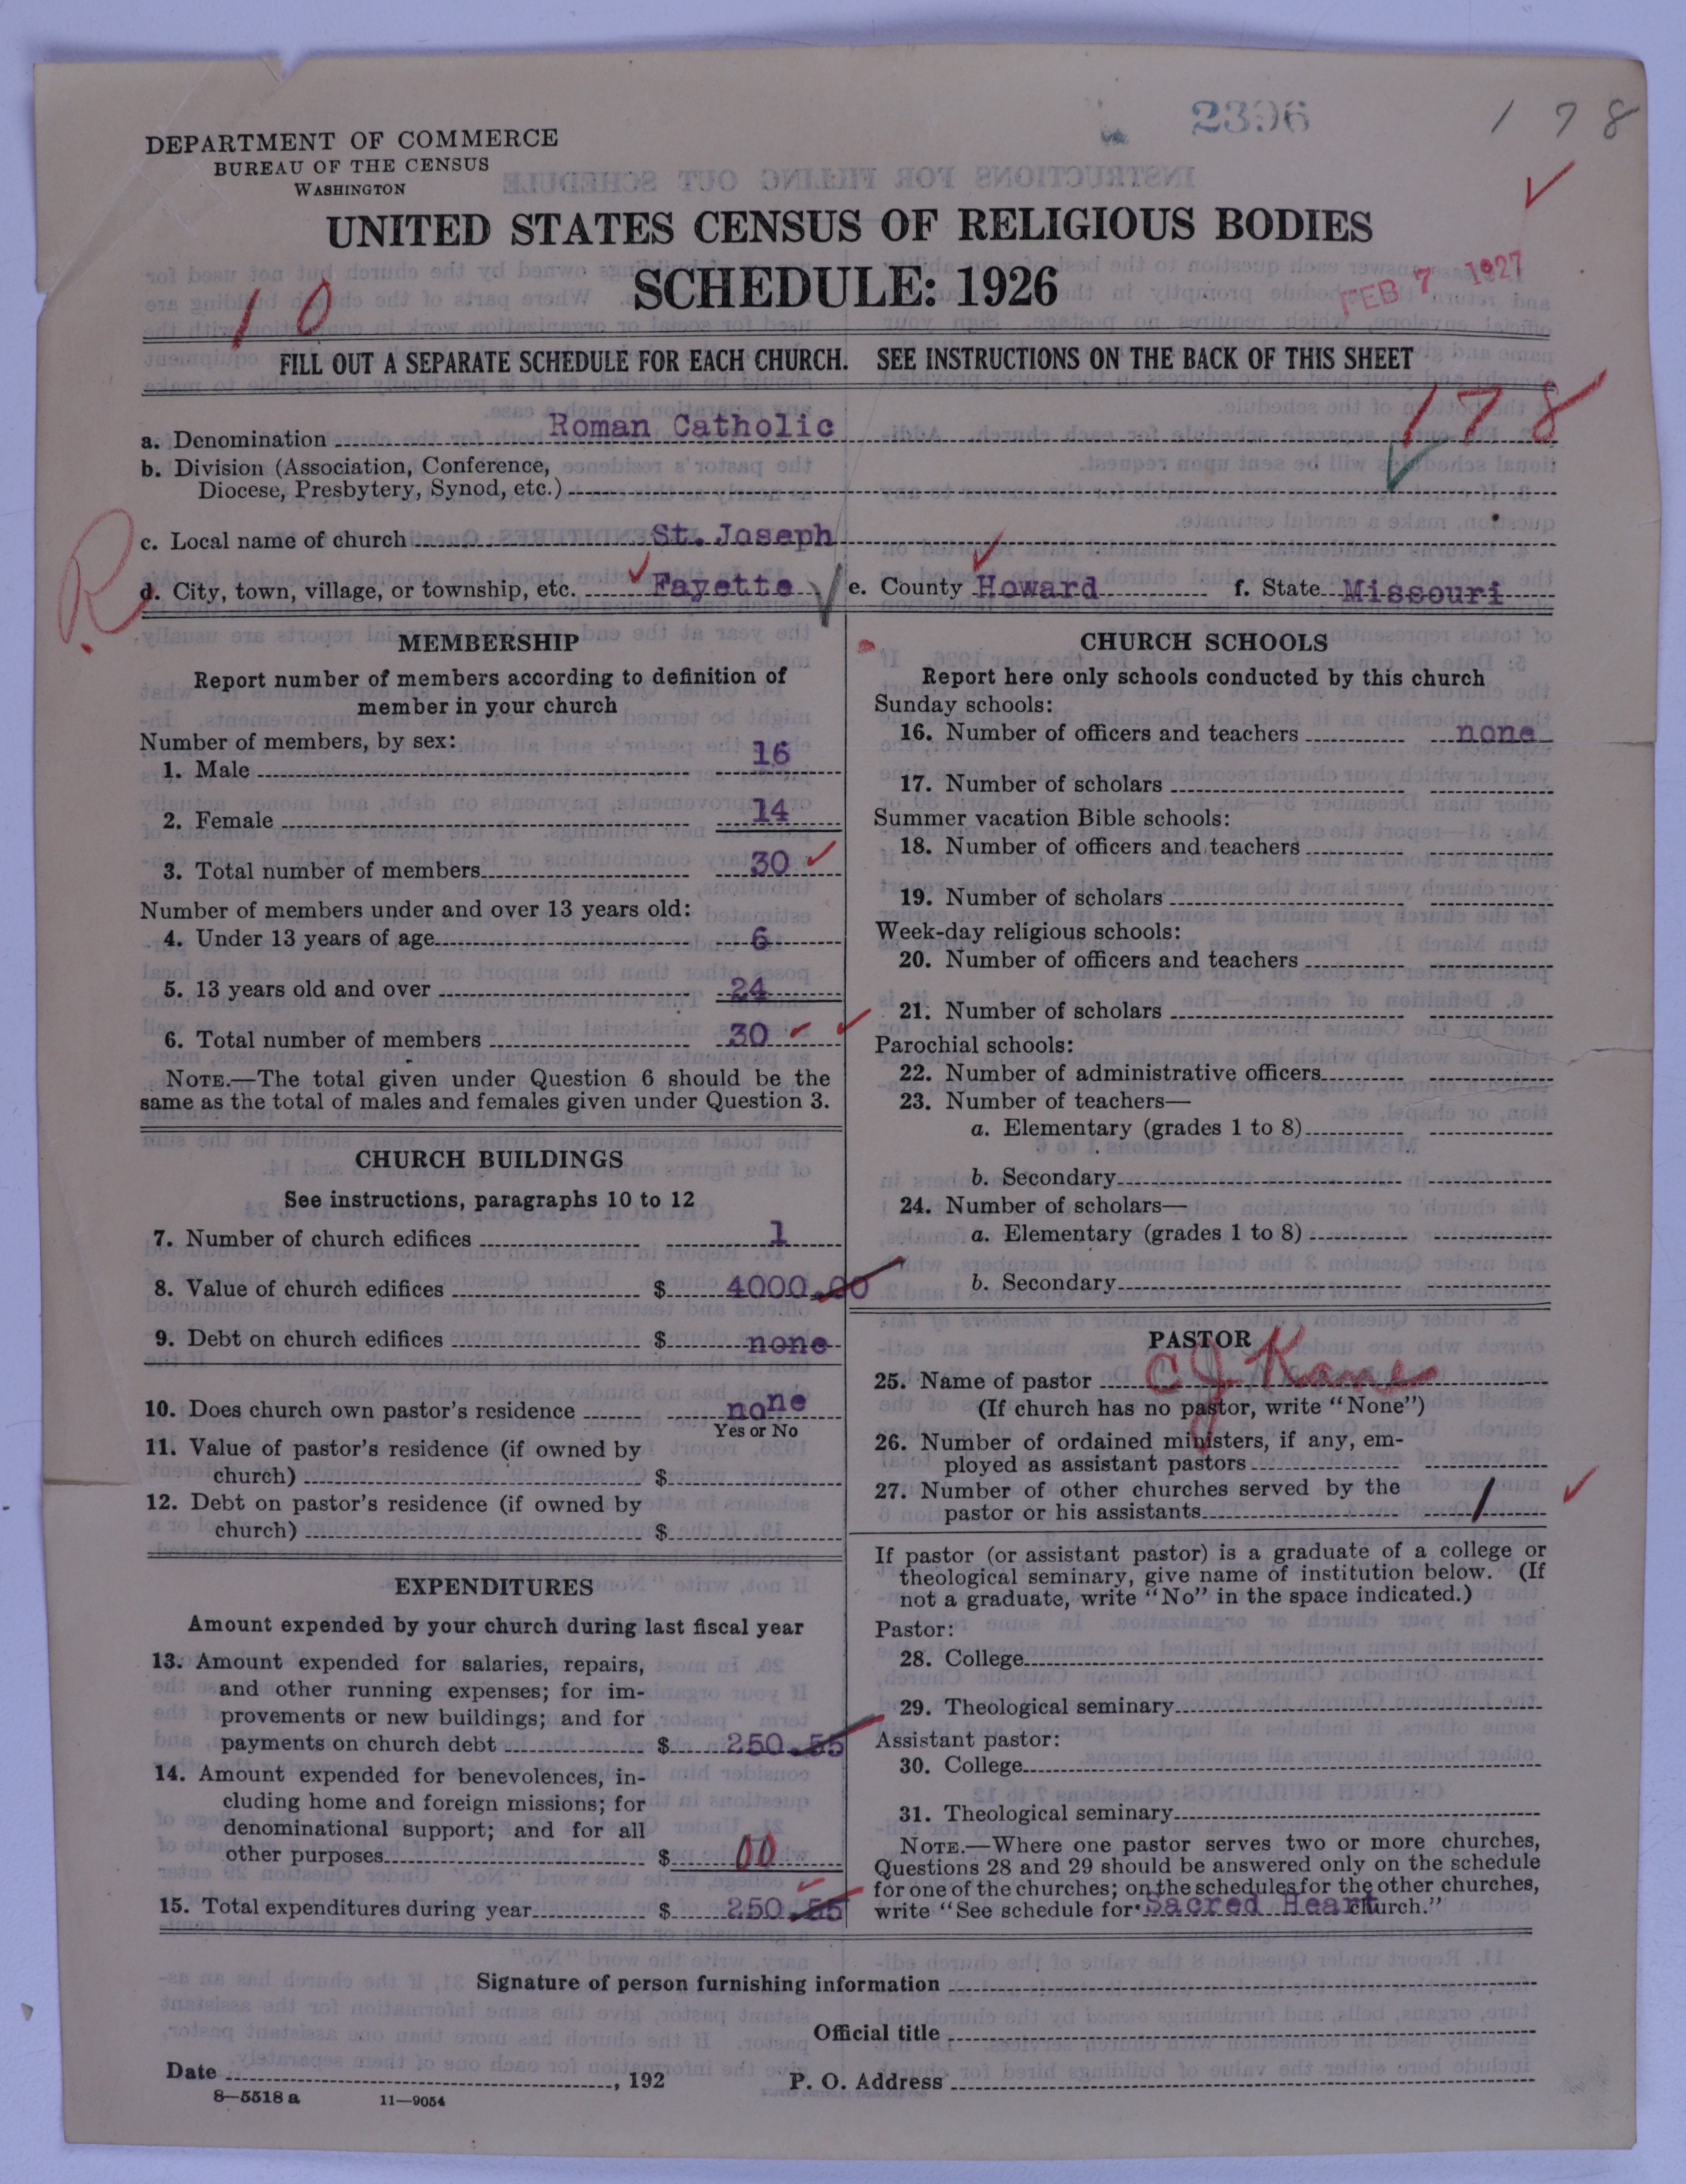 2396
1 7 8
DEPARTMENT OF COMMERCE
BUREAU OF THE CENSUS
WASHINGTON
UNITED STATES CENSUS OF RELIGIOUS BODIES
SCHEDULE: 1926
FEB 7 1927
10
FILL OUT A SEPARATE SCHEDULE FOR EACH CHURCH. SEE INSTRUCTIONS ON THE BACK OF THIS SHEET
178
a. Denomination Roman Catholic
b. Division (Association, Conference,
Diocese, Presbytery, Synod, etc.)
c. Local name of church St. Joseph
R
d. City, town, village, or township, etc. Fayette e. County Howard f. State Missouri
MEMBERSHIP
Report number of members according to definition of
member in your church
Number of members, by sex:
1. Male 16
2. Female 14
3. Total number of members 30
Number of members under and over 13 years old:
4. Under 13 years of age 6
5. 13 years old and over 24
6. Total number of members 30
NOTE.—The total given under Question 6 should be the
same as the total of males and females given under Question 3.
CHURCH BUILDINGS
See instructions, paragraphs 10 to 12
7. Number of church edifices 1
8. Value of church edifices $ 4000.00
9. Debt on church edifices $ none
10. Does church own pastor's residence none
Yes or No
11. Value of pastor's residence (if owned by
church) $
12. Debt on pastor's residence (if owned by
church) $
EXPENDITURES
Amount expended by your church during last fiscal year
13. Amount expended for salaries, repairs,
and other running expenses; for im-
provements or new buildings; and for
payments on church debt $ 250.55
14. Amount expended for benevolences, in-
cluding home and foreign missions; for
denominational support; and for all
other purposes $ 00
15. Total expenditures during year $ 250.55
CHURCH SCHOOLS
Report here only schools conducted by this church
Sunday schools:
16. Number of officers and teachers none
17. Number of scholars
Summer vacation Bible schools:
18. Number of officers and teachers
19. Number of scholars
Week-day religious schools:
20. Number of officers and teachers
21. Number of scholars
Parochial schools:
22. Number of administrative officers
23. Number of teachers—
a. Elementary (grades 1 to 8)
b. Secondary
24. Number of scholars—
a. Elementary (grades 1 to 8)
b. Secondary
PASTOR
25. Name of pastor C J Kane
(If church has no pastor, write "None")
26. Number of ordained ministers, if any, em-
ployed as assistant pastors
27. Number of other churches served by the
pastor or his assistants 1
If pastor (or assistant pastor) is a graduate of a college or
theological seminary, give name of institution below. (If
not a graduate, write "No" in the space indicated.)
Pastor:
28. College
29. Theological seminary
Assistant pastor:
30. College
31. Theological seminary
NOTE.—Where one pastor serves two or more churches,
Questions 28 and 29 should be answered only on the schedule
for one of the churches; on the schedules for the other churches,
write "See schedule for Sacred Heart church."
Signature of person furnishing information
Official title
Date , 192 P. O. Address
8—5518 a 11—9054